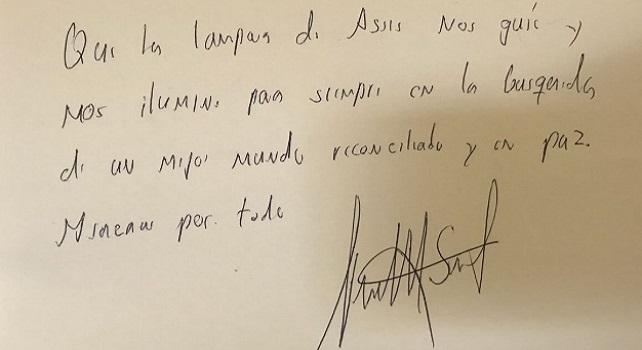 Que la lampara de Assis nos guíe y
nos ilumine para siempre en la busqueda
de un mejor mundo reconciliado y en paz.
por todo